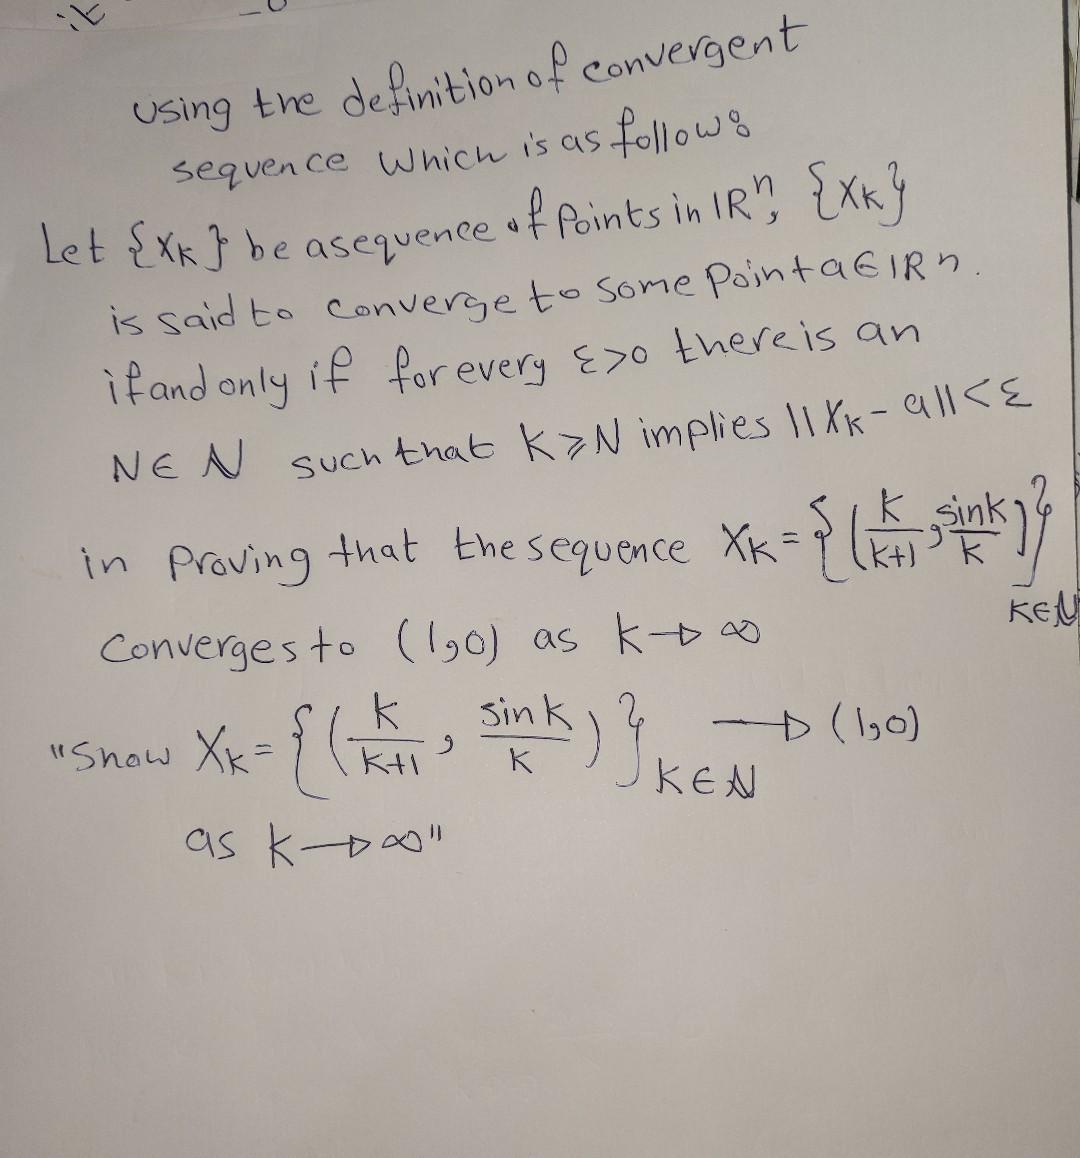 using the definition of convergent
sequence which is as follow:
Let {Xk} be a sequence of points in IRⁿ, {Xk}
is said to converge to some point a ∈ IRⁿ.
if and only if for every ε>0 there is an
N ∈ ℕ such that k ≥ N implies ||Xk - a|| < ε
in proving that the sequence Xk = {(k/k+1, sink/k)}k∈ℕ
converges to (1,0) as k → ∞
"Show Xk = {(k/k+1, sink/k)}k∈ℕ → (1,0)
as k → ∞"